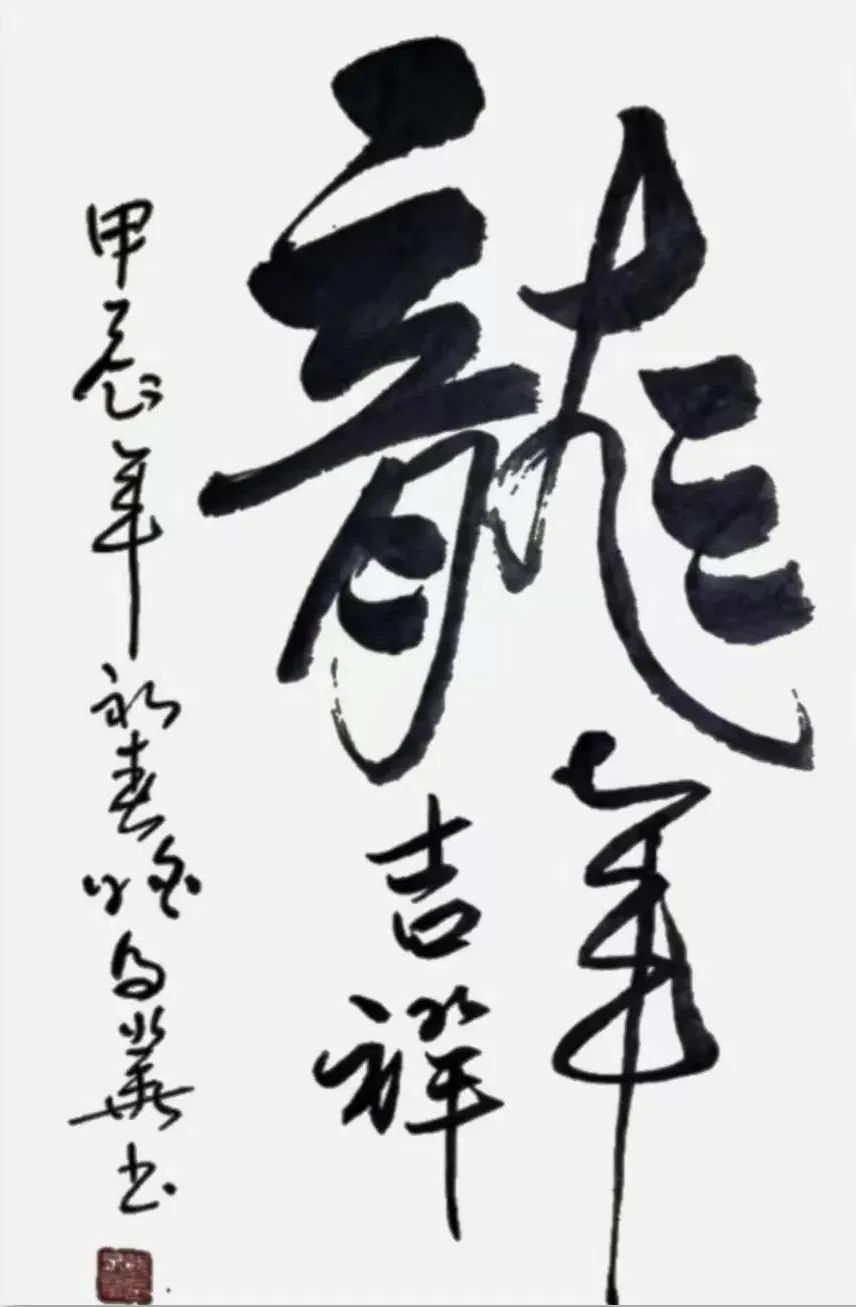 龍年
吉祥
甲辰年初春 书